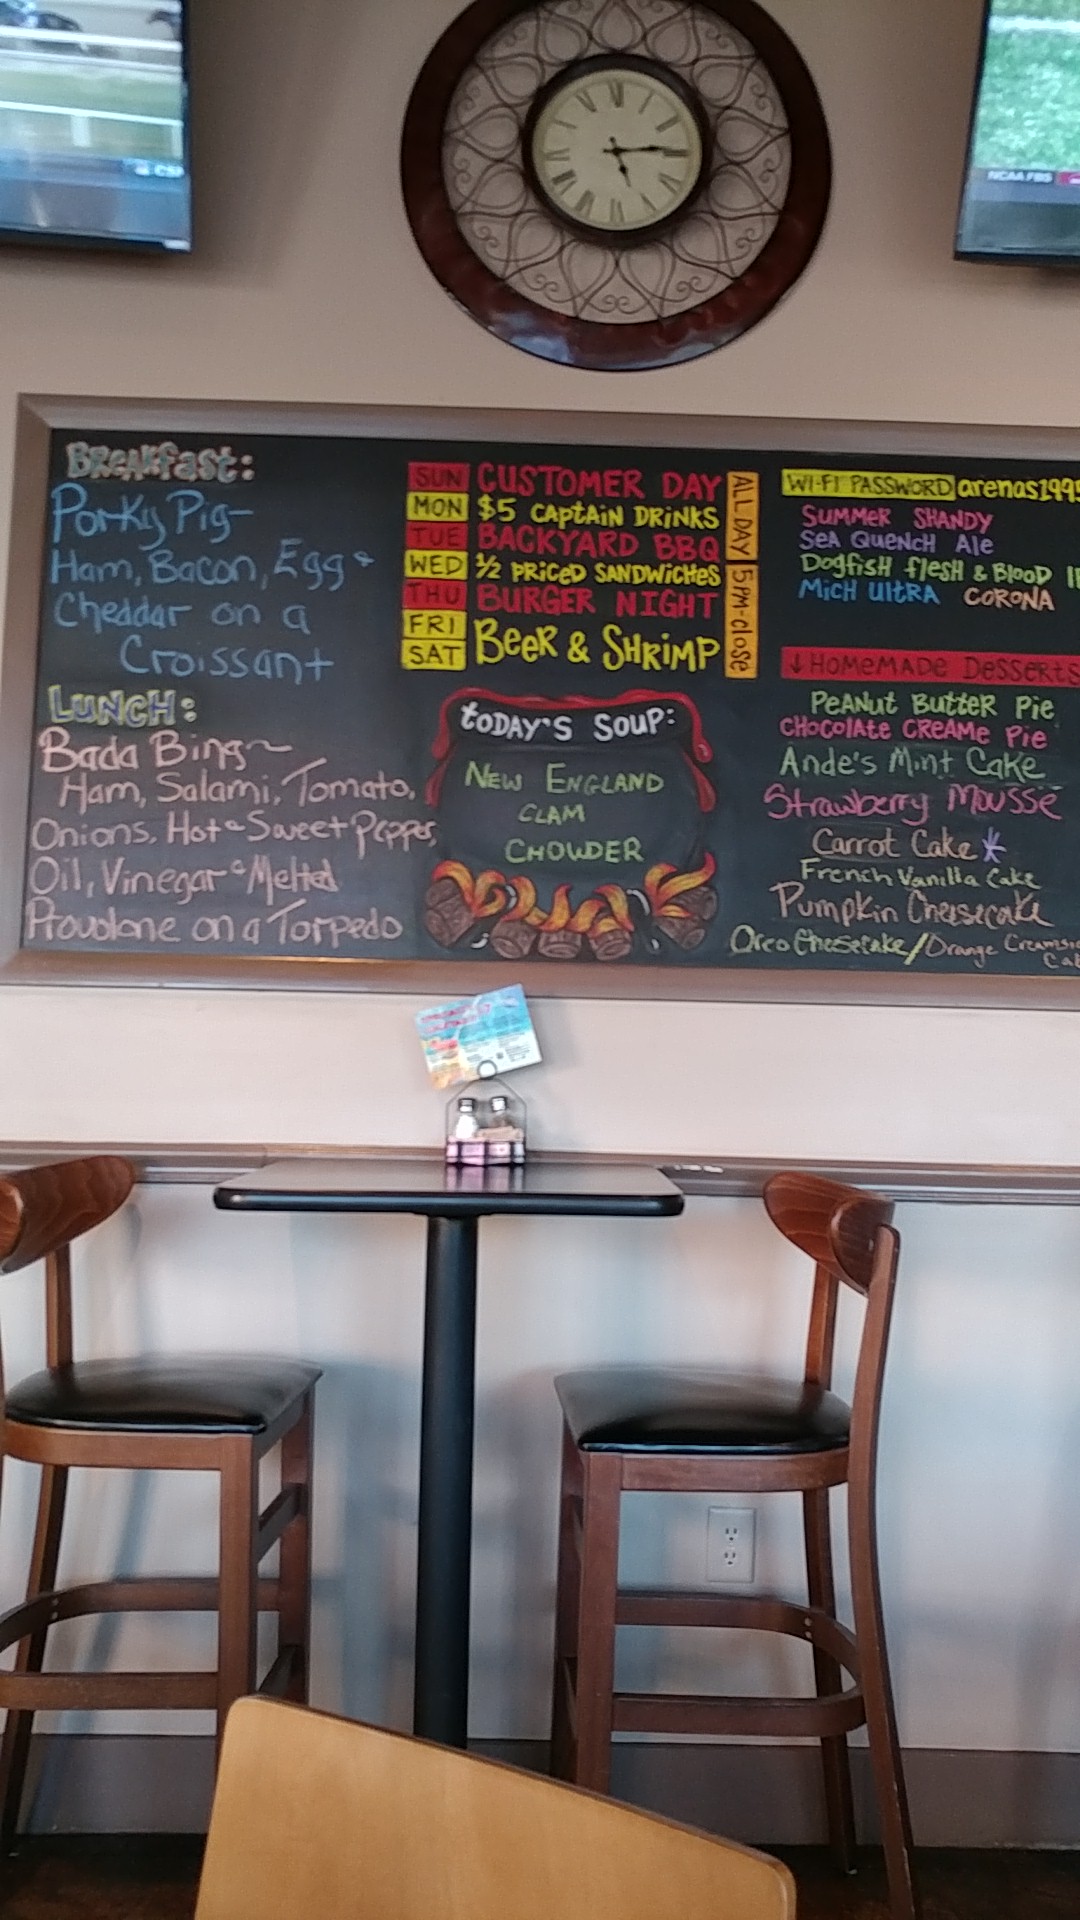 NCAA FBS
BREAKfast:
Porky Pig-
Ham, Bacon, Egg &
Cheddar on a
Croissant
LUNCH:
Bada Bing~
Ham, Salami, Tomato,
Onions, Hot & Sweet Pepper,
Oil, Vinegar & Melted
Provolone on a Torpedo
SUN CUSTOMER DAY
MON $5 CAPTAIN DRINKS
TUE BACKYARD BBQ
WED 1/2 PRICED SANDWICHES
THU BURGER NIGHT
FRI
SAT BEER & SHRIMP
ALL DAY 5PM-close
toDAY'S SOUP:
NEW ENGLAND
CLAM
CHOWDER
WI-FI PASSWORD arenas1995
SUMMER SHANDY
SEA QUENCH ALE
DOGFISH FLESH & BLOOD
MICH ULTRA CORONA
↓HOMEMADE DESSERTS
PEANUT BUTTER PIE
CHOCOLATE CREAME PIE
Ande's Mint Cake
Strawberry Mousse
Carrot Cake *
French Vanilla Cake
Pumpkin Cheesecake
Oreo Cheesecake/Orange